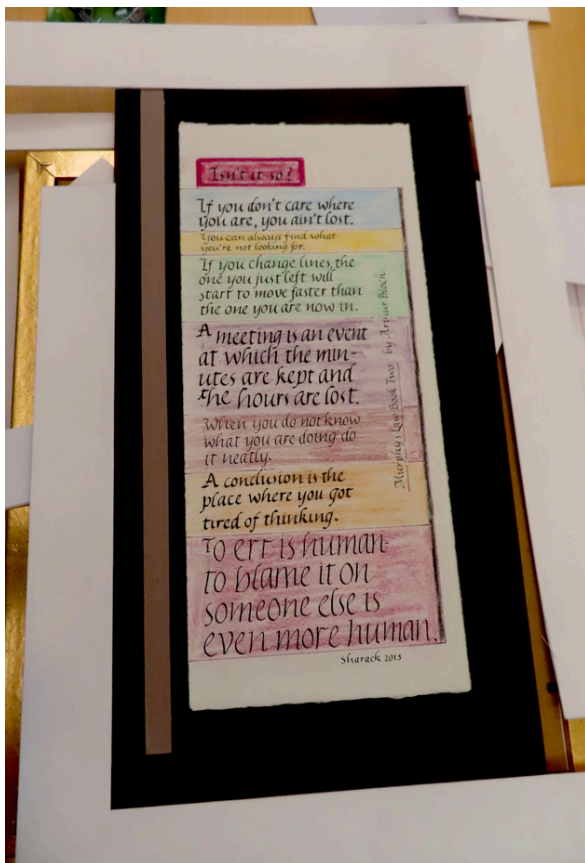 Isn't it so?
If you don't care where
you are, you ain't lost.
You can always find what
you're not looking for.
If you change lines, the
one you just left will
start to move faster than
the one you are now in.
A meeting is an event
at which the min-
utes are kept and
the hours are lost.
When you do not know
what you are doing do
it neatly.
A conclusion is the
place where you got
tired of thinking.
To err is human
to blame it on
someone else is
even more human.
Murphy's Law Book Two by Arthur Bloch
Sharack 2015